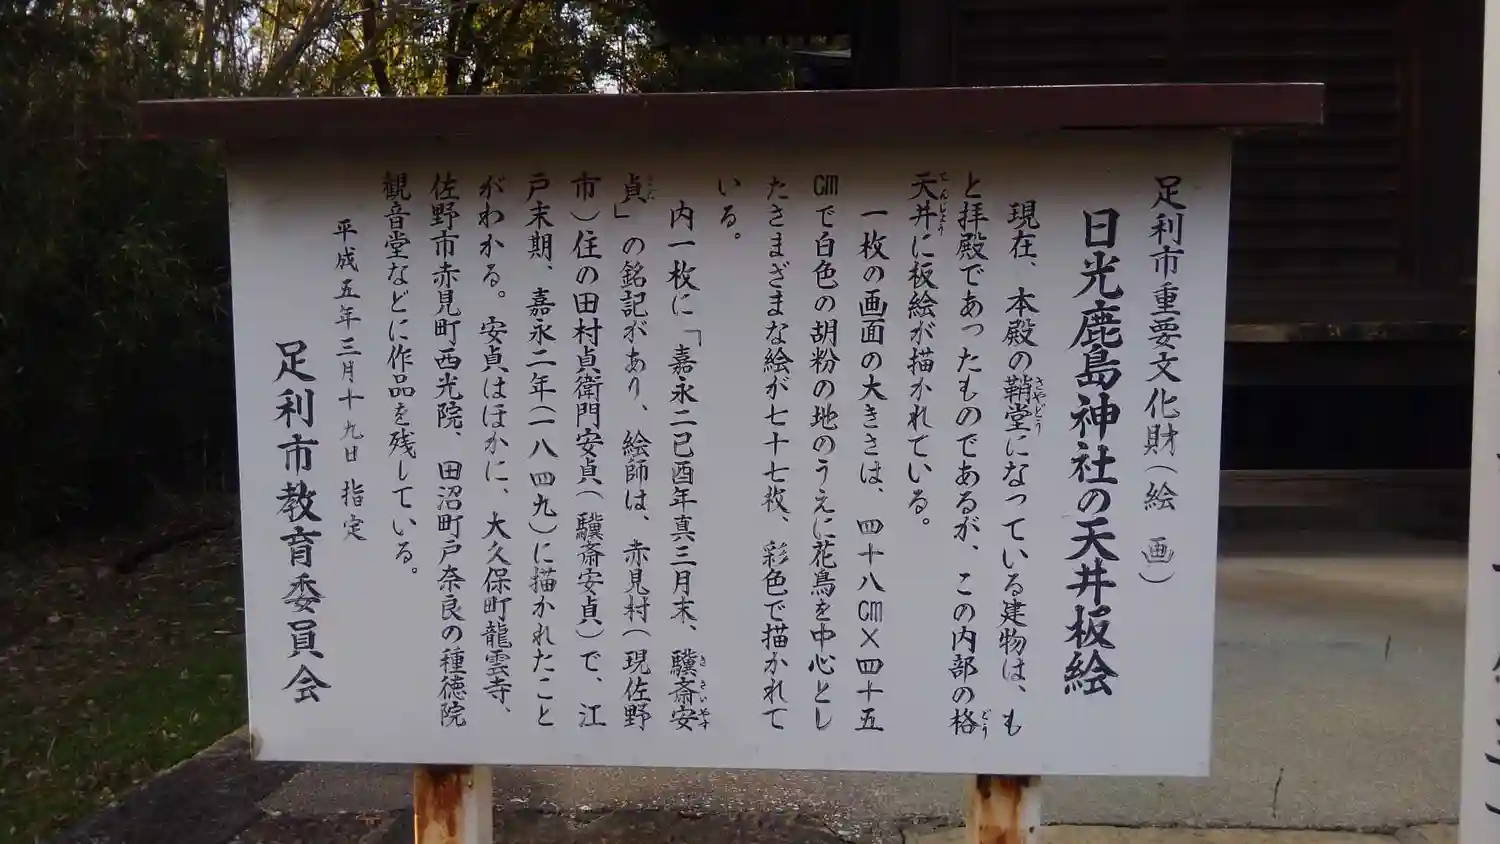 足利市重要文化財(絵 画)
日光鹿島神社の天井板絵
現在、本殿の鞘堂になっている建物は、も
と拝殿であったものであるが、この内部の格
天井に板絵が描かれている。
一枚の画面の大きさは、四十八㎝×四十五
㎝で白色の胡粉の地のうえに花鳥を中心とし
たさまざまな絵が七十七枚、彩色で描かれて
いる。
内一枚に「嘉永二己酉年真三月末、驥斎安
貞」の銘記があり、絵師は、赤見村(現佐野
市)住の田村貞衛門安貞(驥斎安貞)で、江
戸末期、嘉永二年(一八四九)に描かれたこと
がわかる。安貞はほかに、大久保町龍雲寺、
佐野市赤見町西光院、田沼町戸奈良の種徳院
観音堂などに作品を残している。
平成五年三月十九日 指定
足利市教育委員会